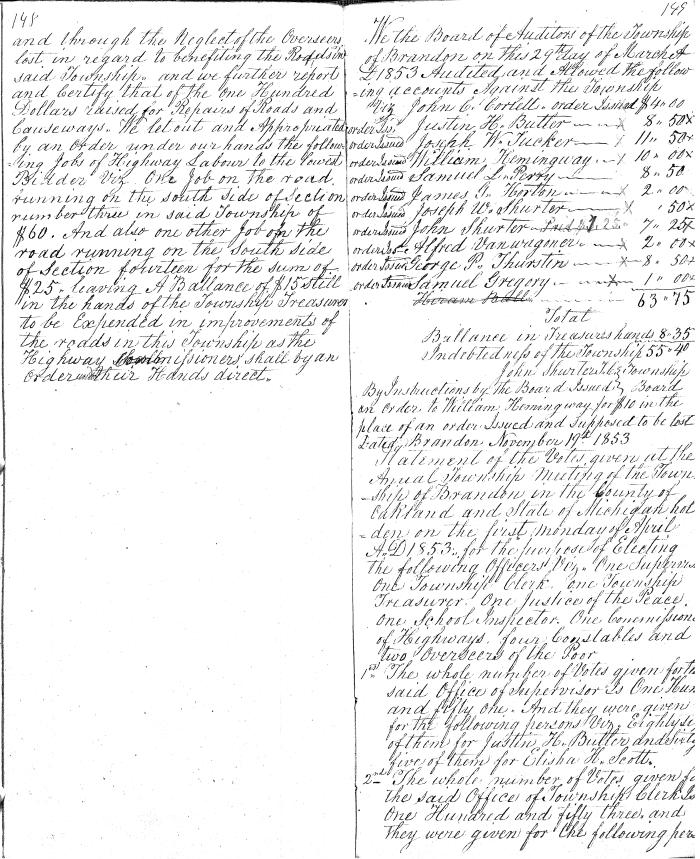 148
and through the Neglect of the Overseers
lost in regard to benefiting the Roads in
said Township. and we further report
and Certify that of the One Hundred
Dollars raised for Repairs of Roads and
Causeways. We let out and Appropriated
by an Order under our hands the follow
ing Jobs of Highway Labour to the lowest
Bidder Viz One Job on the road
running on the south side of Section
number three in said Township of
$60. And also one other Job on the
road running on the South side
of Section fourteen for the sum of
$25. leaving A Ballance of $15 still
in the hands of the Township Treasurer
to be Expended in improvements of
the roads in this Township as the
Highway Commissioners shall by an
Order under their Hands direct.
149
We the Board of Auditors of the Township
of Brandon on this 29th day of March A
D 1853 Audited and Allowed the follow
=ing accounts Against the Township
Viz John C. Cortell. order Issued $4=00
order Iss. Justin H. Butler x 8=50x
order Issued Joseph W. Tucker x 11=50x
order Issued William Hemingway x 10=00x
order Issued Samuel L. Perry 8=50
order Issued James G. Horton x 2=00
order Issued Joseph W. Shurter x "50x
order Issued John Shurter 7"25x
order Iss. Alfred Vanwagoner x 2"00x
order Issued George P. Thurstin x 8"50x
order Issued Samuel Gregory x 1"00x
Hiram Ball 63"75
Total
Ballance in Treasurers hands 8=35
Indebtedness of the Township 55=40
John Shurter T. Clk Township
By Instructions by the Board Issued } Board
an order to William Hemingway for $10 in the
place of an order Issued and Supposed to be lost
Dated Brandon November 19th 1853
Statement of the Votes given at the
Anual Township Meeting of the Town
=ship of Brandon in the County of
Oakland and State of Michigan hol
=den on the first Monday of April
A.D 1853. for the purpose of Electing
the following Officers Viz. One Supervis
One Township Clerk. one Township
Treasurer. One Justice of the Peace
One School Inspector. One Commission
of Highways. four Constables and
two Overseers of the Poor
1st The whole number of Votes given for the
said Office of Supervisor Is One Hun
and fifty one. And they were given
for the following persons Viz. Eighty se
of them for Justin H. Butler and Sixty
five of them for Elisha H. Scott.
2nd The whole number of Votes given fo
the said Office of Township Clerk Is
One Hundred and fifty three, and
they were given for the following per